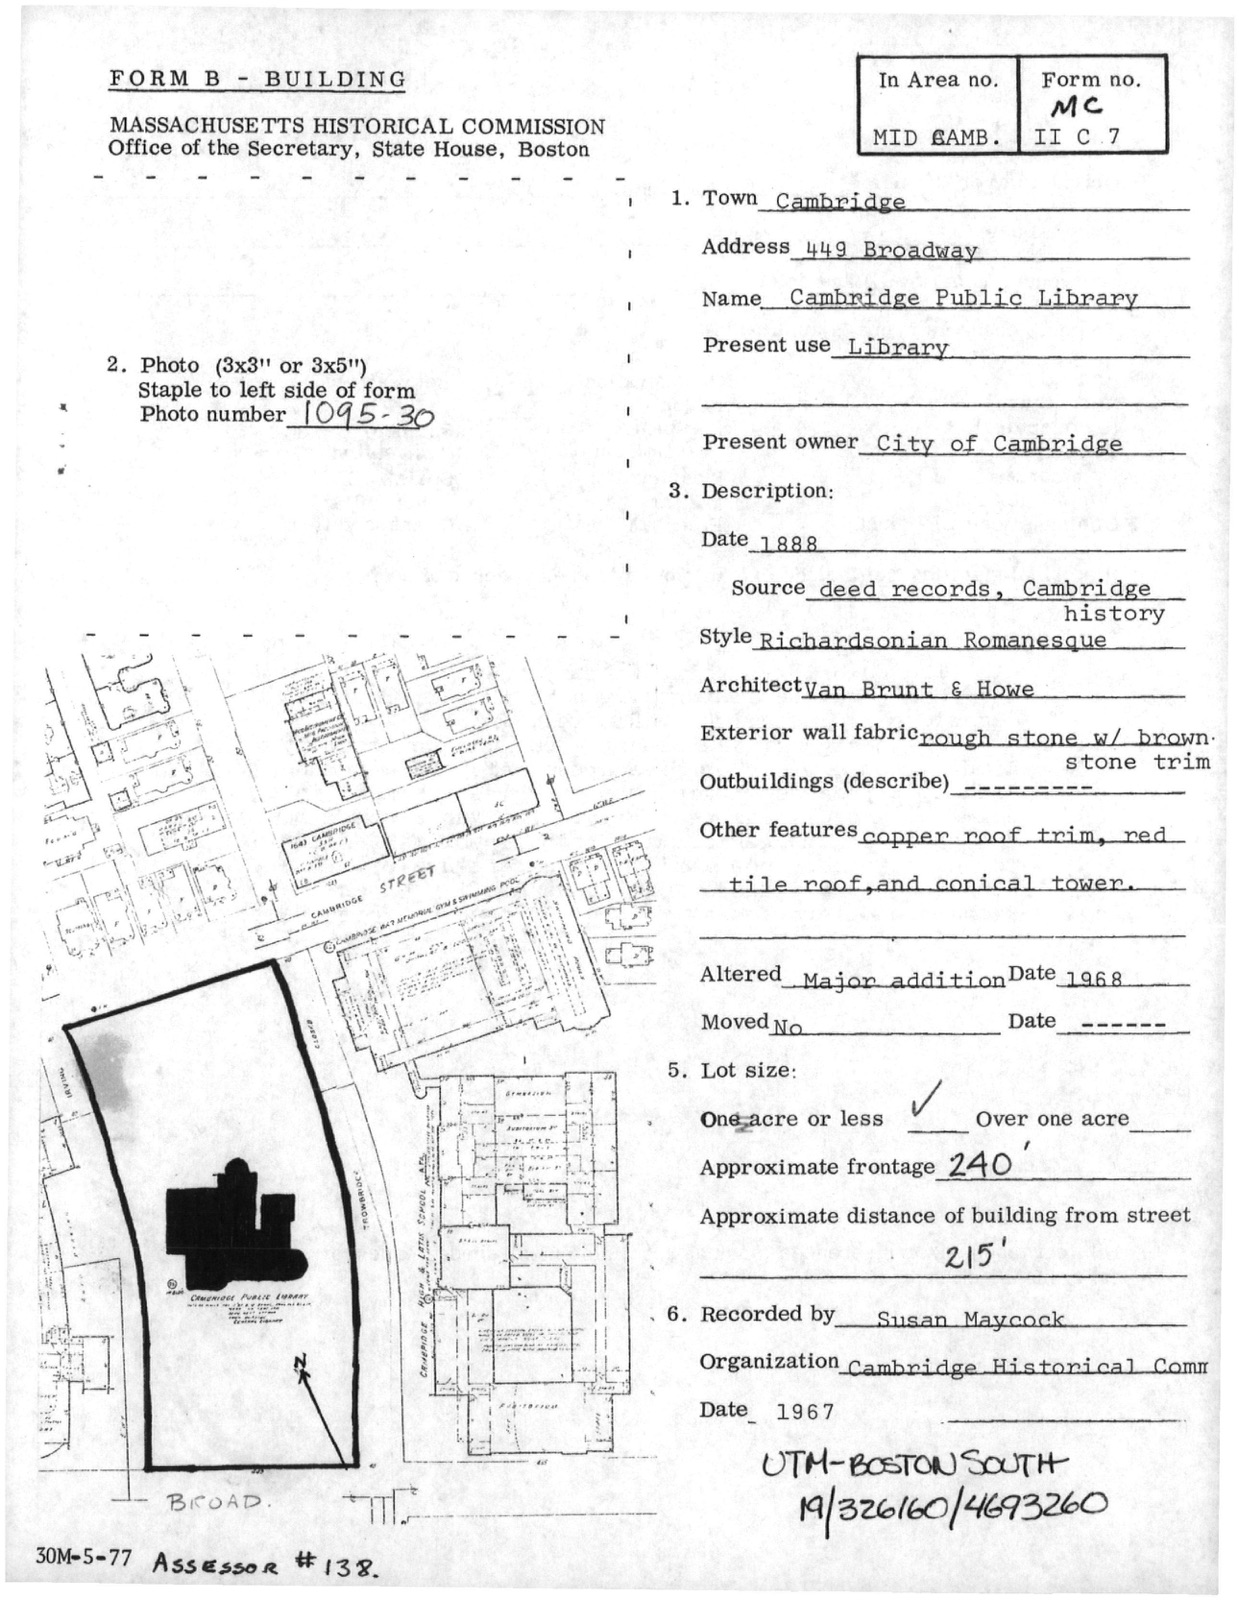 FORM B - BUILDING
MASSACHUSETTS HISTORICAL COMMISSION
Office of the Secretary, State House, Boston
In Area no.
MID CAMB.
Form no.
MC
II C 7
2. Photo (3x3" or 3x5")
Staple to left side of form
Photo number 1095-30
1. Town Cambridge
Address 449 Broadway
Name Cambridge Public Library
Present use Library
Present owner City of Cambridge
3. Description:
Date 1888
Source deed records, Cambridge
history
Style Richardsonian Romanesque
Architect Van Brunt & Howe
Exterior wall fabric rough stone w/ brown-
stone trim
Outbuildings (describe) ---------
Other features copper roof trim, red
tile roof,and conical tower.
Altered Major addition Date 1968
Moved No Date ------
5. Lot size:
One acre or less ✓ Over one acre
Approximate frontage 240'
Approximate distance of building from street
215'
6. Recorded by Susan Maycock
Organization Cambridge Historical Comm
Date 1967
UTM-BOSTON SOUTH
19/326160/4693260
1643 CAMBRIDGE
CAMBRIDGE STREET
CAMBRIDGE WAR MEMORIAL GYM & SWIMMING POOL
IRVING
TROWBRIDGE
GYMNASIUM
AUDITORIUM
CAMBRIDGE HIGH & LATIN SCHOOL
CAMBRIDGE PUBLIC LIBRARY
N
BROAD.
30M-5-77 ASSESSOR # 138.